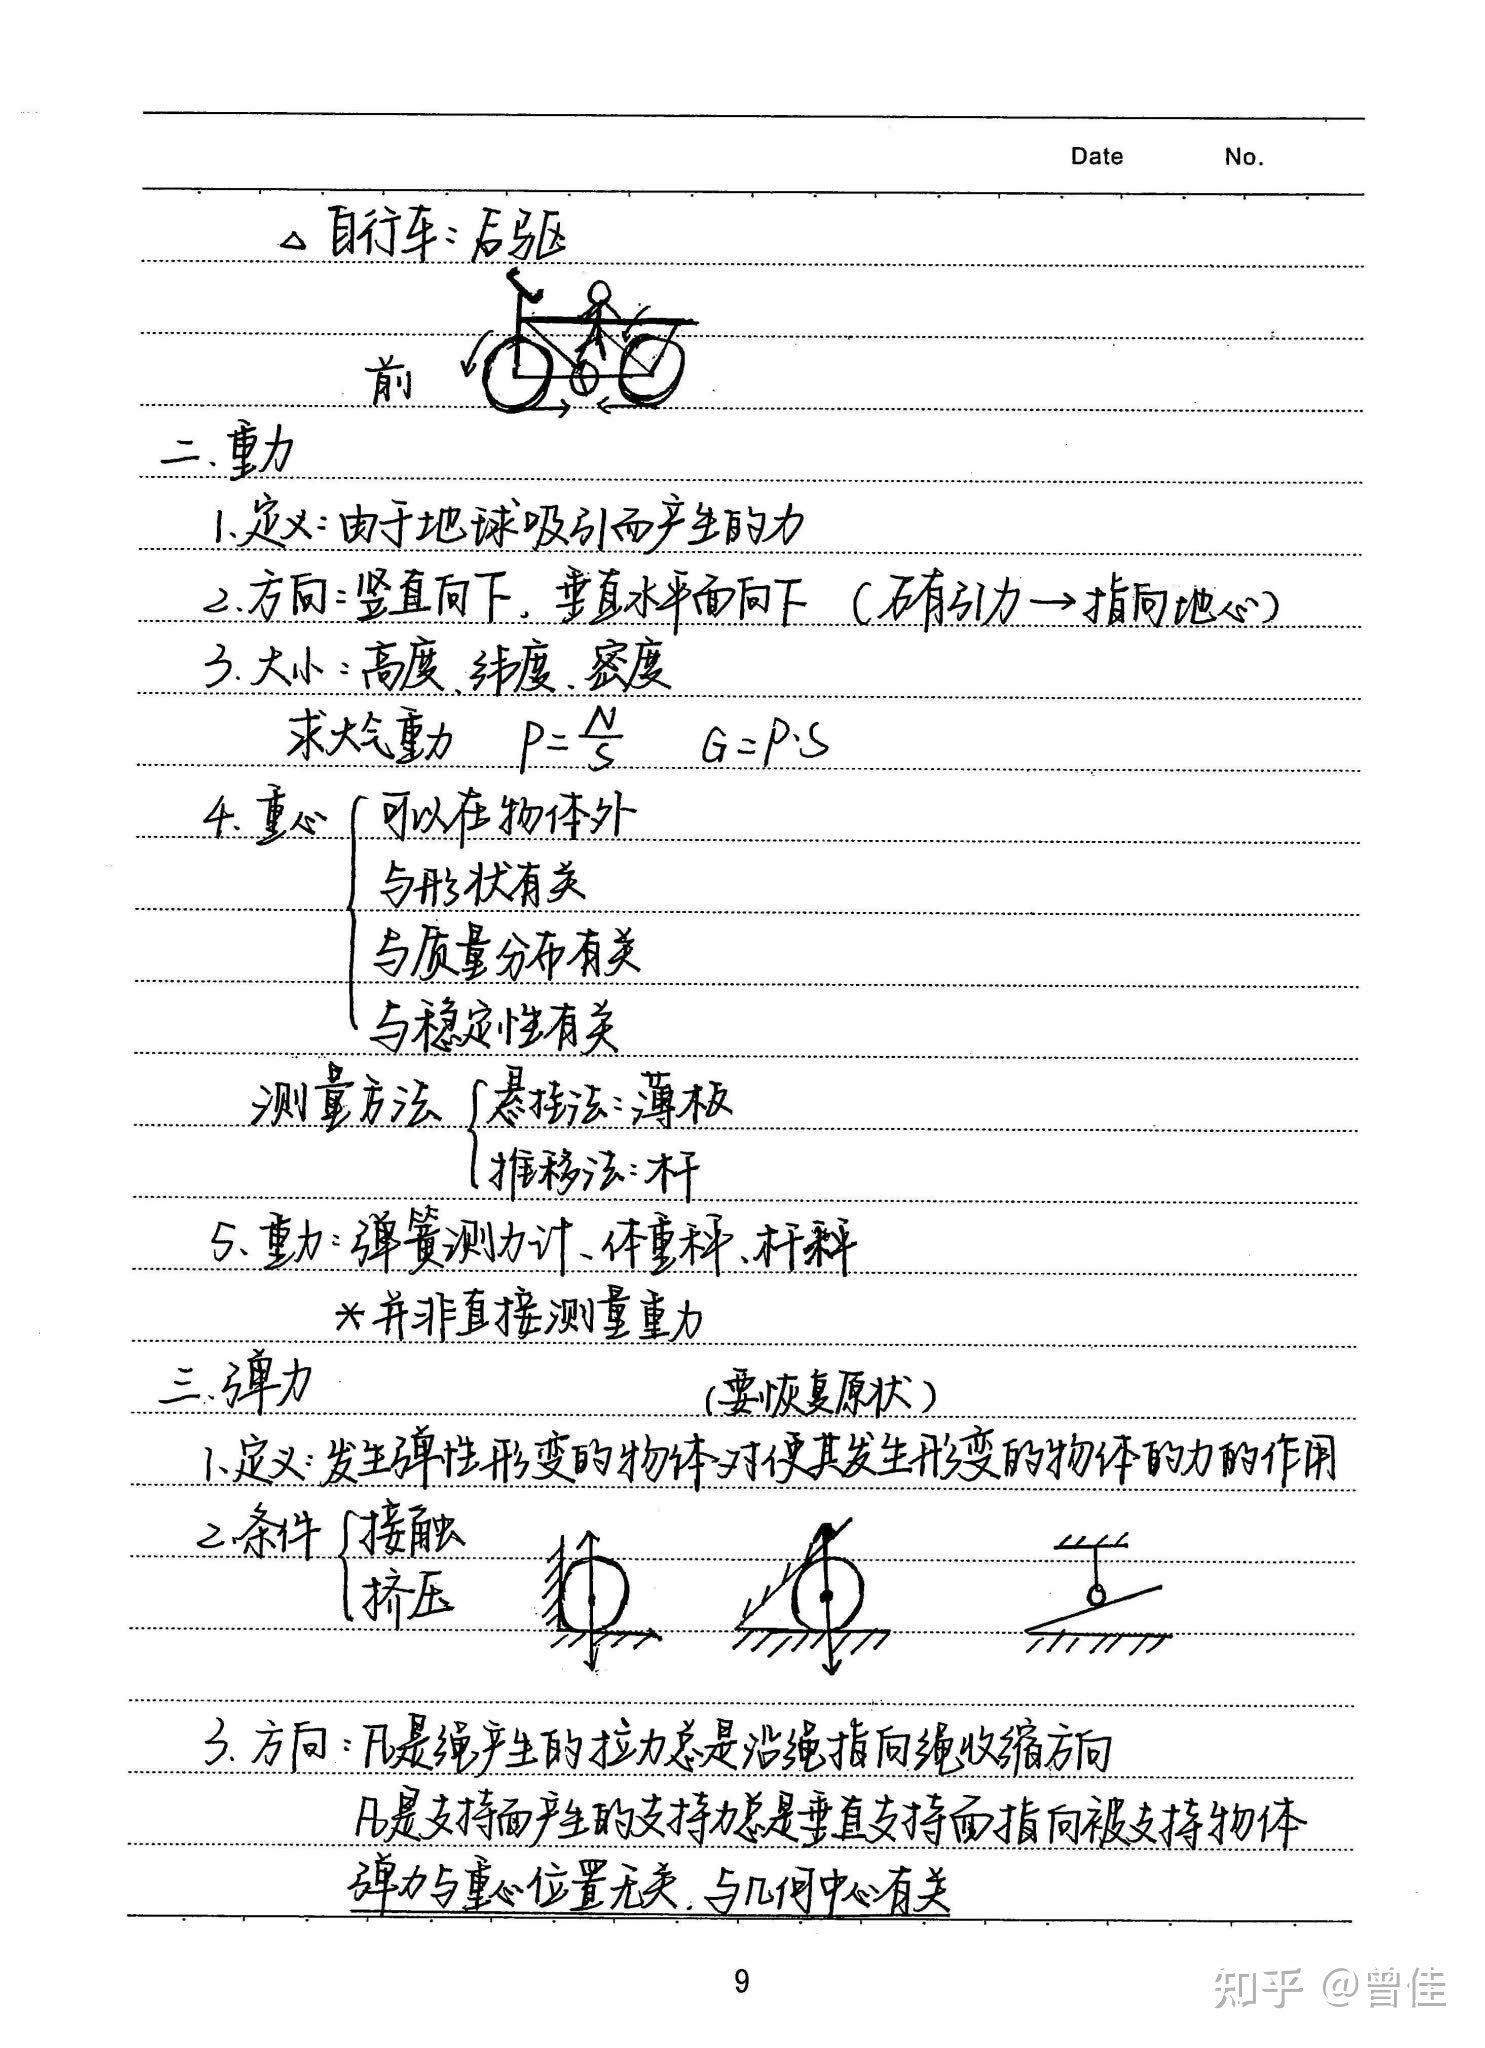 Date No.
△ 自行车：后驱
前
二.重力
1.定义：由于地球吸引而产生的力
2.方向：竖直向下，垂直水平面向下（万有引力→指向地心）
3.大小：高度、纬度、密度
求大气重力 P=N/S G=P·S
4.重心 { 可以在物体外
与形状有关
与质量分布有关
与稳定性有关
测量方法 { 悬挂法：薄板
推移法：杆
5、重力：弹簧测力计、体重秤、杆秤
*并非直接测量重力
三.弹力 （要恢复原状）
1.定义：发生弹性形变的物体对使其发生形变的物体的力的作用
2.条件 { 接触
挤压
3.方向：凡是绳产生的拉力总是沿绳指向绳收缩方向
凡是支持面产生的支持力总是垂直支持面指向被支持物体
弹力与重心位置无关，与几何中心有关
9
知乎 @曾佳